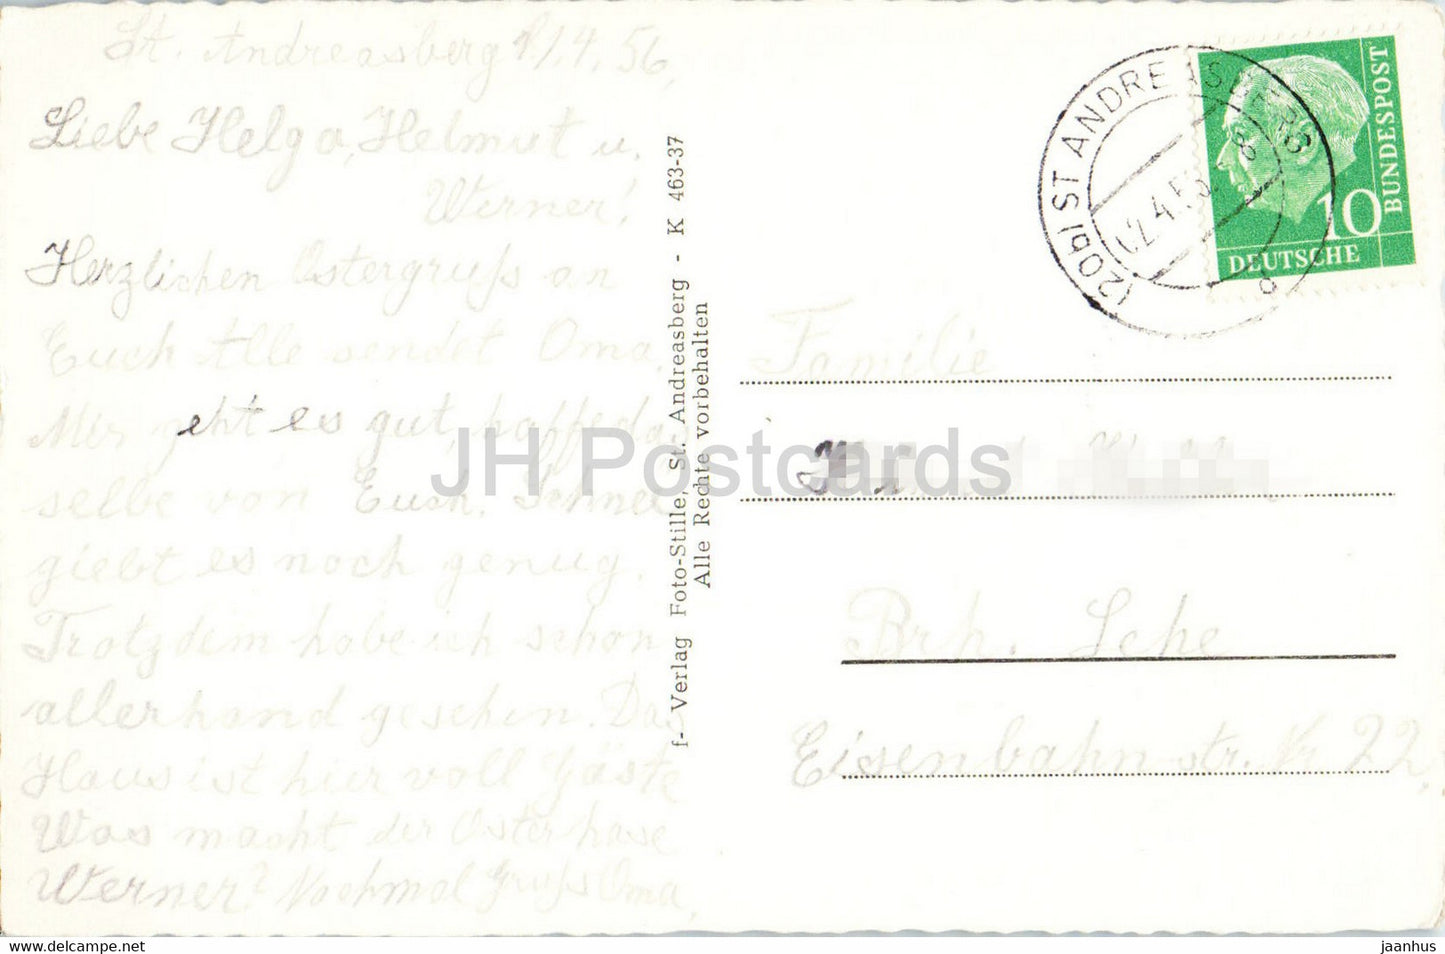 St. Andreasberg 1/4. 56.
Liebe Helga, Helmut u.
Werner!
Herzlichen Ostergruß an
Euch Alle sendet Oma.
Mir geht es gut, hoffe das
selbe von Euch. Schnee
giebt es noch genug.
Trotzdem habe ich schon
allerhand gesehen. Das
Haus ist hier voll Gäste
Was macht der Osterhase
Werner? Nochmal Gruß Oma.
f- Verlag Foto-Stille, St. Andreasberg - K 463-37
Alle Rechte vorbehalten
(20b) ST ANDREASBERG
02.4.56.
DEUTSCHE
BUNDESPOST
10
Familie
Brh. Lehe
Eisenbahnstr. Nr 22.
JH Postcards
www.delcampe.net
jaanhus